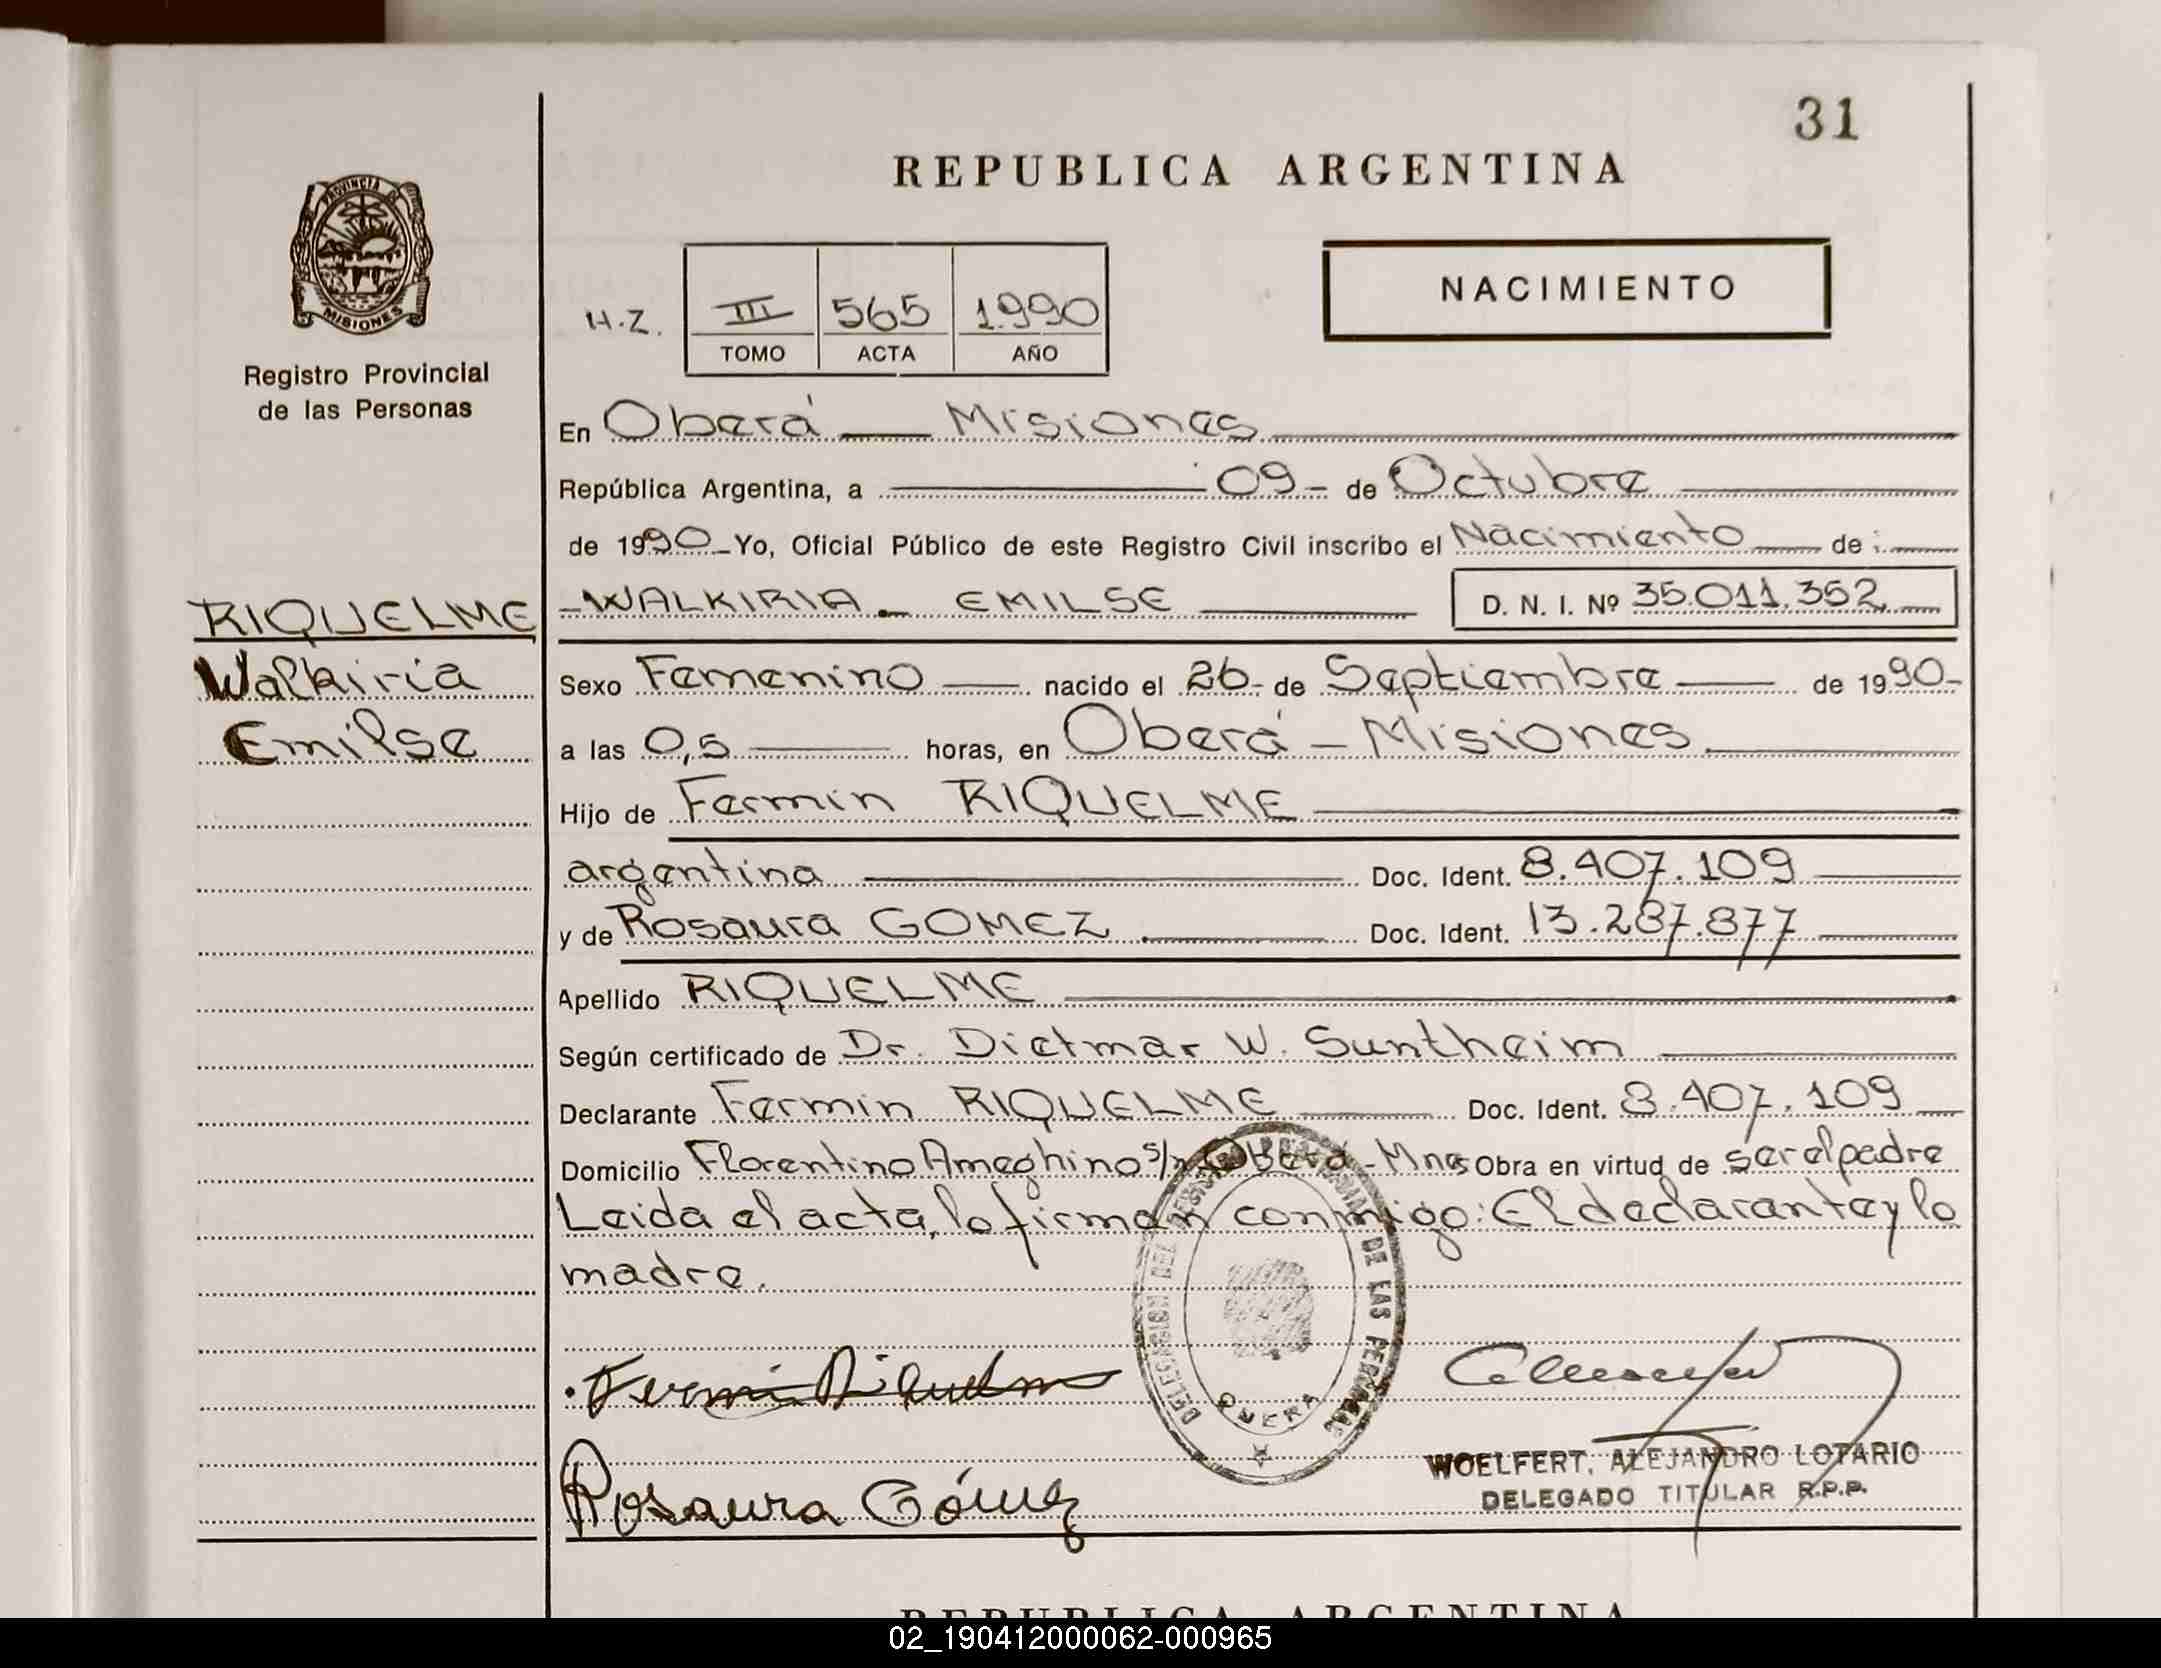 31
REPUBLICA ARGENTINA
PROVINCIA DE
MISIONES
Registro Provincial
de las Personas
NACIMIENTO
H.Z. III 565 1.990
TOMO ACTA AÑO
En Oberá — Misiones
República Argentina, a 09 - de Octubre
de 1990 - Yo, Oficial Público de este Registro Civil inscribo el Nacimiento de :
RIQUELME
Walkiria
Emilse
- WALKIRIA EMILSE D. N. I. Nº 35.011.352
Sexo Femenino nacido el 26 - de Septiembre de 1990 -
a las 0,5 horas, en Oberá - Misiones
Hijo de Fermin RIQUELME
argentina Doc. Ident. 8.407.109
y de Rosaura GOMEZ Doc. Ident. 13.287.877
Apellido RIQUELME
Según certificado de Dr. Dietmar W. Suntheim
Declarante Fermin RIQUELME Doc. Ident. 8.407.109
Domicilio Florentino Ameghino s/n Oberá - Mnes Obra en virtud de ser el padre
Leida el acta, lo firman conmigo: El declarante y la
madre.
DELEGACION DEL REGISTRO PROVINCIAL DE LAS PERSONAS
OBERA
Fermin Riquelme
Rosaura Gómez
WOELFERT, ALEJANDRO LOTARIO
DELEGADO TITULAR R.P.P.
REPUBLICA ARGENTINA
02_190412000062-000965